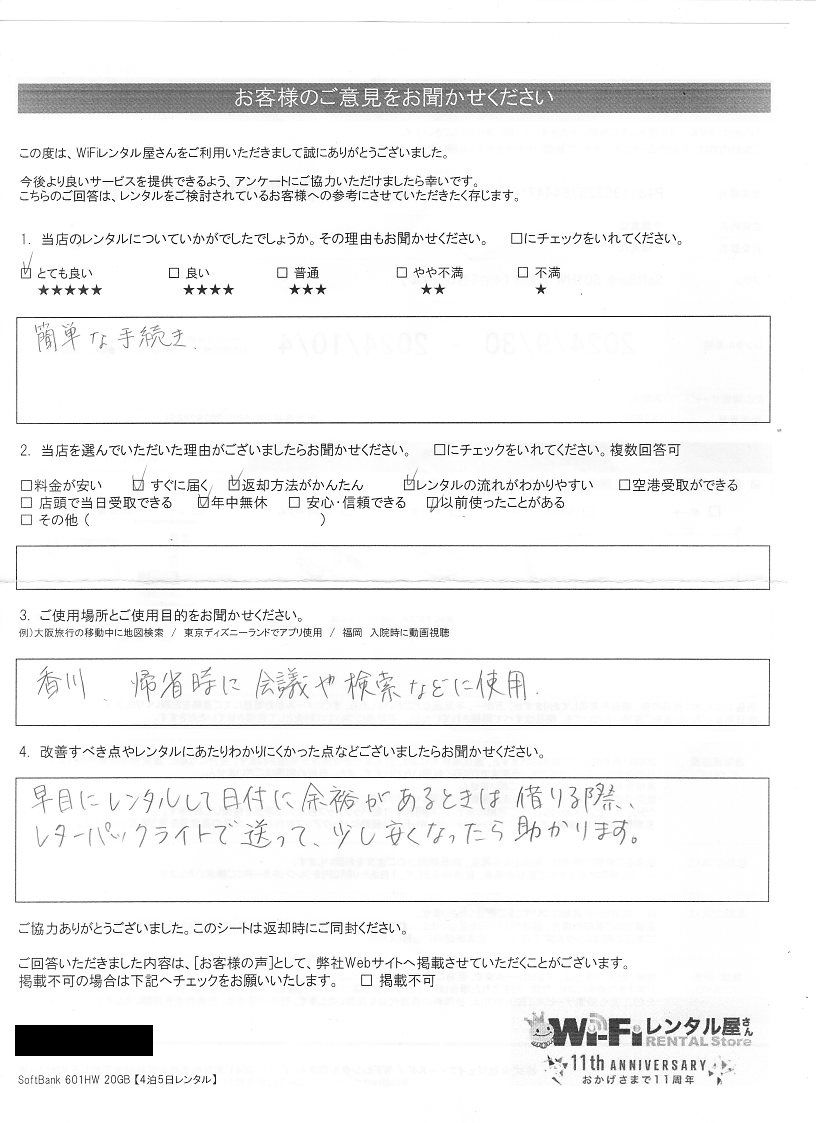 お客様のご意見をお聞かせください
この度は、WiFiレンタル屋さんをご利用いただきまして誠にありがとうございました。
今後より良いサービスを提供できるよう、アンケートにご協力いただけましたら幸いです。
こちらのご回答は、レンタルをご検討されているお客様への参考にさせていただきたく存じます。
1. 当店のレンタルについていかがでしたでしょうか。その理由もお聞かせください。 □にチェックをいれてください。
☑ とても良い □ 良い □ 普通 □ やや不満 □ 不満
★★★★★ ★★★★ ★★★ ★★ ★
簡単な手続き.
2. 当店を選んでいただいた理由がございましたらお聞かせください。 □にチェックをいれてください。複数回答可
□料金が安い ☑ すぐに届く ☑返却方法がかんたん ☑レンタルの流れがわかりやすい □空港受取ができる
□ 店頭で当日受取できる ☑年中無休 □ 安心・信頼できる ☑以前使ったことがある
□ その他 ( )
3. ご使用場所とご使用目的をお聞かせください。
例)大阪旅行の移動中に地図検索 / 東京ディズニーランドでアプリ使用 / 福岡 入院時に動画視聴
香川、帰省時に会議や検索などに使用.
4. 改善すべき点やレンタルにあたりわかりにくかった点などございましたらお聞かせください。
早目にレンタルして日付に余裕があるときは借りる際、
レターパックライトで送って、少し安くなったら助かります。
ご協力ありがとうございました。このシートは返却時にご同封ください。
ご回答いただきました内容は、[お客様の声]として、弊社Webサイトへ掲載させていただくことがございます。
掲載不可の場合は下記へチェックをお願いいたします。 □ 掲載不可
Wi-Fiレンタル屋さん
RENTAL Store
11th ANNIVERSARY
おかげさまで11周年
SoftBank 601HW 20GB【4泊5日レンタル】